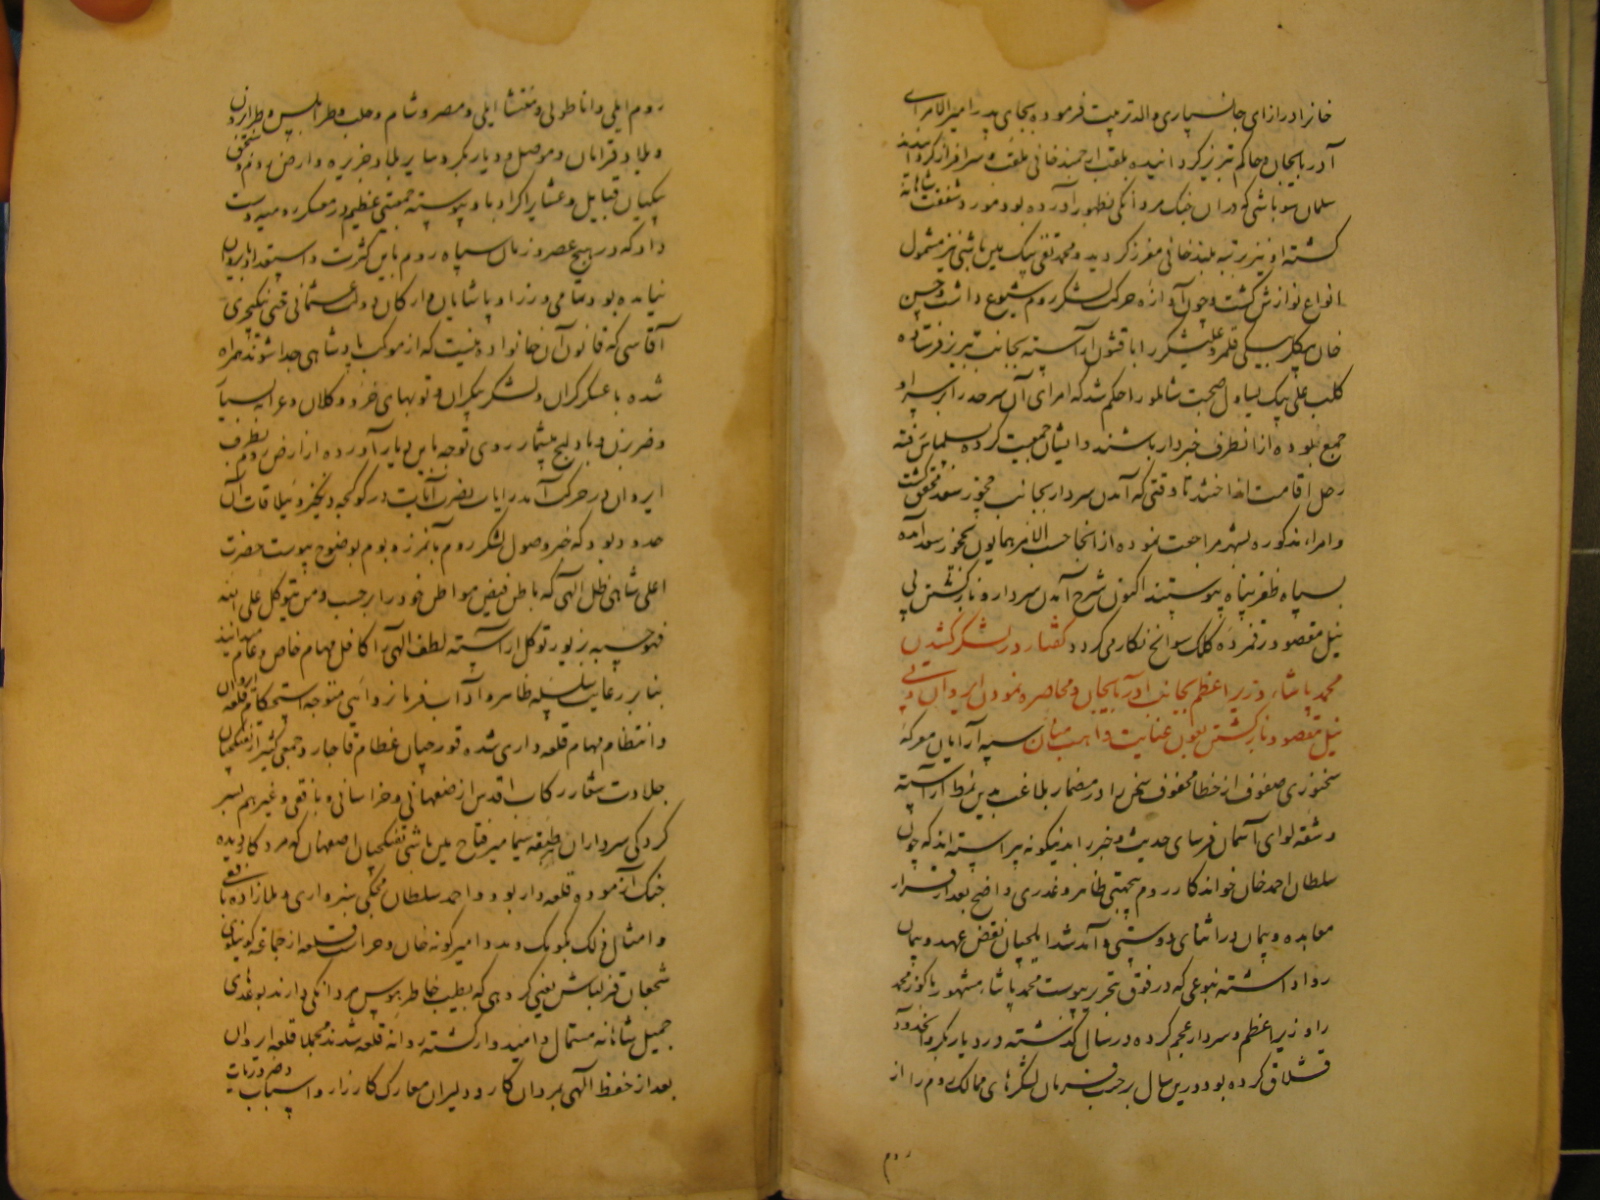 خانزاد را از ای جانسپاری والد تربیت فرموده بجای پدر امیرالامرای
آذربایجان و حاکم تبریز گردانیده بلقب ارجمند خانی ملقب و سرافراز گردانیدند
سلمان سوباشی که در آن جنک مردانکی بظهور آورده بود مورد شفقت شاهانه
کشته او نیز برتبه بلند خانی مفرز کردید و محمد تقی بیک مین باشی نیز مشمول
انواع نوازش کشت و چون آوازه حرکت لشکر روم شیوع داشت حسن
خان بیکلربیکی قلمرو علیشکر را با قشون آراسته بجانب تبریز فرستاده
کلب علی بیک یساول صحبت شاملو را حکم شد که امرای آن سرحد را بر سر او
جمع نموده از انطرف خبردار باشند و ایشان جمعیت کرده بسلماس رفته
رحل اقامت انداختند تا وقتی که آمدن سردار بجانب چخور سعد محقق کشت
و امراء مذکوره بشهر مراجعت نموده از انجا حسب الامر همایون بچخور سعد آمده
بسپاه ظفر پناه پیوستند اکنون شرح آمدن سردار و بازکشتن بی
نیل مقصود رقمزده کلک سوانح نکار می کردد کفتار در لشکر کشیدن
محمد پاشاء وزیر اعظم بجانب آذربایجان و محاصره نمودن ایروان و بی
نیل مقصود بازکشتن بعون عنایت واهب منان سپه آرایان معرکه
سخنوری صفوف از خطا محفوف سخن را در مضمار بلاغت بدین نمط آراسته
و شقه لوای آسمان فرسای حدیث و خبر را بدینکونه پیراسته اند که چون
سلطان احمد خان خواندکار روم بیجهتی ظاهر و عذری واضح بعد از قرار
معاهده و پیمان در اثنای دوستی و آمد شد ایلچیان نقض عهد و پیمان
روا داشته بنوعی که در فوق تحریر پیوست محمد پاشاء مشهور باکوز محمد
را وزیر اعظم و سردار عجم کرده در سال کذشته در دیار بکر و انحدود
قشلاق کرده بود و درین سال بر حسب فرمان لشکرهای ممالک روم را از
روم
روم ایلی و اناطولی و منتشا ایلی و مصر و شام و حلب و طرابلس و طرابزن
و بلاد قرامان و موصل و دیار بکر و سایر بلاد جزیره و ارض روم و متخفق
بیکیان قبایل و عشایر اکراد باو پیوسته جمعیتی عظیم در معسکر رومیه دست
داد که در هیچ عصر و زمان سپاه روم باین کثرت و استعداد بایروان
نیامده بود و تمامی وزرا و پاشایان و ارکان دولت عثمانی حتی ینکیچری
آقاسی که قانون آن خانواده نیست که از موکب پادشاهی جدا شوند همراه
شده با عسکر کران و لشکر بیکران و توبهای خرد و کلان و عرابه بسیار
و ضربزن و بادلیج بیشمار روی توجه باین دیار آورده از ارض روم بطرف
ایروان در حرکت آمد رایات نصرت آیات در کوکجه دنکیز و ییلاقات آن
حدود بود که خبر وصول لشکر روم بآنمرز و بوم بوضوح پیوست حضرت
اعلی شاهی ظل الهی که باطن فیض مواطن خود را بر حسب و من یتوکل علی الله
فهو حسبه بزیور توکل آراسته لطف الهی را کافل مهام خاص و عام میدانند
بنا بر رعایت سلسله ظاهر و آداب فرمانروایی متوجه استحکام قلعه ایروان
و انتظام مهام قلعه داری شده قورچیان عظام قاجار و جمعی کثیر از تفنکچیان
جلادت شعار رکاب اقدس از صفهانی و خراسانی و بافقی و غیرهم بسر
کردکی سرداران طبقه سیما میر فتاح مین باشی تفنکچیان اصفهان که مرد کار دیده
جنک آزموده قلعه دار بود و احمد سلطان مجکی سبزواری و ملازاده بافقی
و امثال ذلک بکومک و مدد امیرکونه خان و حراست قلعه از جماعه کونیلی
شجعان قزلباش یعنی کروهی که بطیب خاطر هوس مردانکی دارند بوعدهای
جمیل شاهانه مستمال و امیدوار کشته روانه قلعه شدند مجملا قلعه ایروان
بعد از حفظ الهی بمردان کار و دلیران معارک کارزار و اسباب و ضروریات